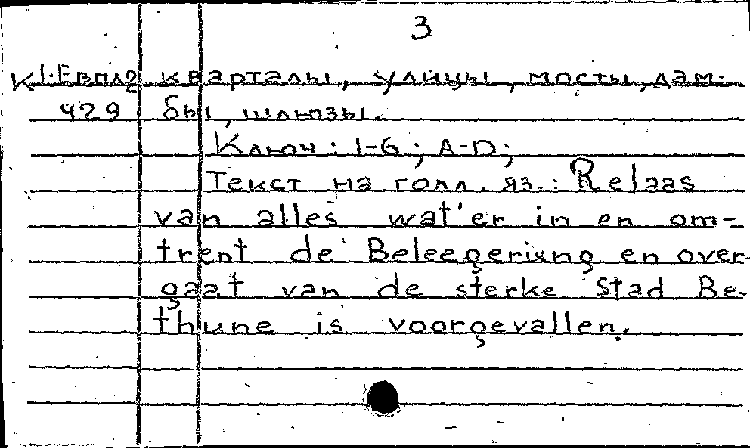 3
К 1-Евпл2 кварталы, улицы, мосты, дам-
429 бы, шлюзы.
Ключ: 1-G; A-D;
Текст на голл. яз.: Relaas
van alles wat'er in en om-
trent de Beleegering en over-
gaat van de sterke Stad Be-
thune is voorgevallen.